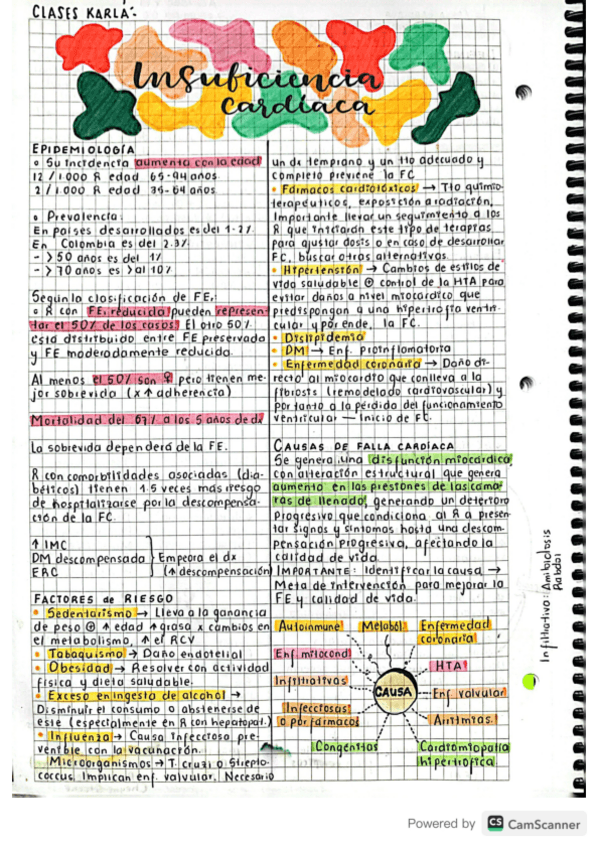 CLASES KARLA:
Insuficiencia
cardíaca
EPIDEMIOLOGÍA
• Su incidencia aumenta con la edad
12 / 1.000 R edad 65-94 años
2 / 1.000 R edad 35-64 años
• Prevalencia:
En países desarrollados es del 1-2%
En Colombia es del 2.3%
-> 50 años es del 1%
-> 70 años es >al 10%
Según la clasificación de FE:
• R con FE reducida pueden represen-
tar el 50% de los casos. El otro 50%
está distribuido entre FE preservada
y FE moderadamente reducida.
Al menos el 50% son ♀ pero tienen me-
jor sobrevida (x ↑ adherencia)
Mortalidad del 67% a los 5 años de dx
La sobrevida dependerá de la FE.
R con comorbilidades asociadas (dia-
béticos) tienen 1.5 veces más riesgo
de hospitalizarse por la descompensa-
ción de la FC.
↑ IMC
DM descompensada } Empeora el dx
ERC (↑ descompensación)
FACTORES de RIESGO
• Sedentarismo → Lleva a la ganancia
de peso ⊕ ↑ edad ↑ grasa x cambios en
el metabolismo, ↑ el RCV
• Tabaquismo → Daño endotelial
• Obesidad → Resolver con actividad
física y dieta saludable.
• Exceso en ingesta de alcohol →
Disminuir el consumo o abstenerse de
este (especialmente en R con hepatopat.)
• Influenza → Causa infecciosa pre-
venible con la vacunación.
• Microorganismos → T. cruzi o Strepto-
coccus. Implican enf. valvular. Necesario
un dx temprano y un tto adecuado y
completo previene la FC
• Fármacos cardiotóxicos → Tto quimio-
terapéuticos, exposición a radiación.
Importante llevar un seguimiento a los
R que iniciarán este tipo de terapias,
para ajustar dosis o en caso de desarrollar
FC, buscar otras alternativas.
• Hipertensión → Cambios de estilos de
vida saludable ⊕ control de la HTA para
evitar daños a nivel miocárdico que
predispongan a una hipertrofia ventri-
cular y por ende, la FC.
• Dislipidemia
• DM → Enf. proinflamatoria
• Enfermedad coronaria → Daño di-
recto al miocardio que conlleva a la
fibrosis (remodelado cardiovascular) y
por tanto a la pérdida del funcionamiento
ventricular — Inicio de FC.
CAUSAS DE FALLA CARDÍACA
Se genera una disfunción miocárdica
con alteración estructural que genera
aumento en las presiones de las cáma-
ras de llenado, generando un deterioro
progresivo que condiciona al R a presen-
tar signos y síntomas hasta una descom-
pensación progresiva, afectando la
calidad de vida.
IMPORTANTE: Identificar la causa →
Meta de intervención para mejorar la
FE y calidad de vida.
Autoinmune Metaból. Enfermedad
coronaria
Enf. mitocond
HTA
Infiltrativas
CAUSA
Enf. valvular
Infecciosas
o por fármacos
Arritmias.
Congénitas
Cardiomiopatía
hipertrófica
Infiltrativo: Amiloidosis
Powered by CS CamScanner